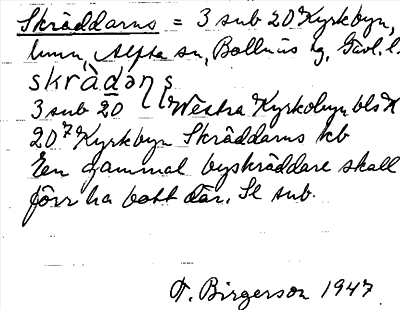 Skräddarns = 3 sub 20⁷ Kyrkbyn,
hmn, Alfta sn, Bollnäs tg, Gävl. l.
skrädəɳʂ
3 sub 20⁷ Westra Kyrkobyn bls K
20⁷ Kyrkbyn Skräddarns kb
En gammal byskräddare skall
förr ha bott där. Se sub.
F. Birgerson 1947